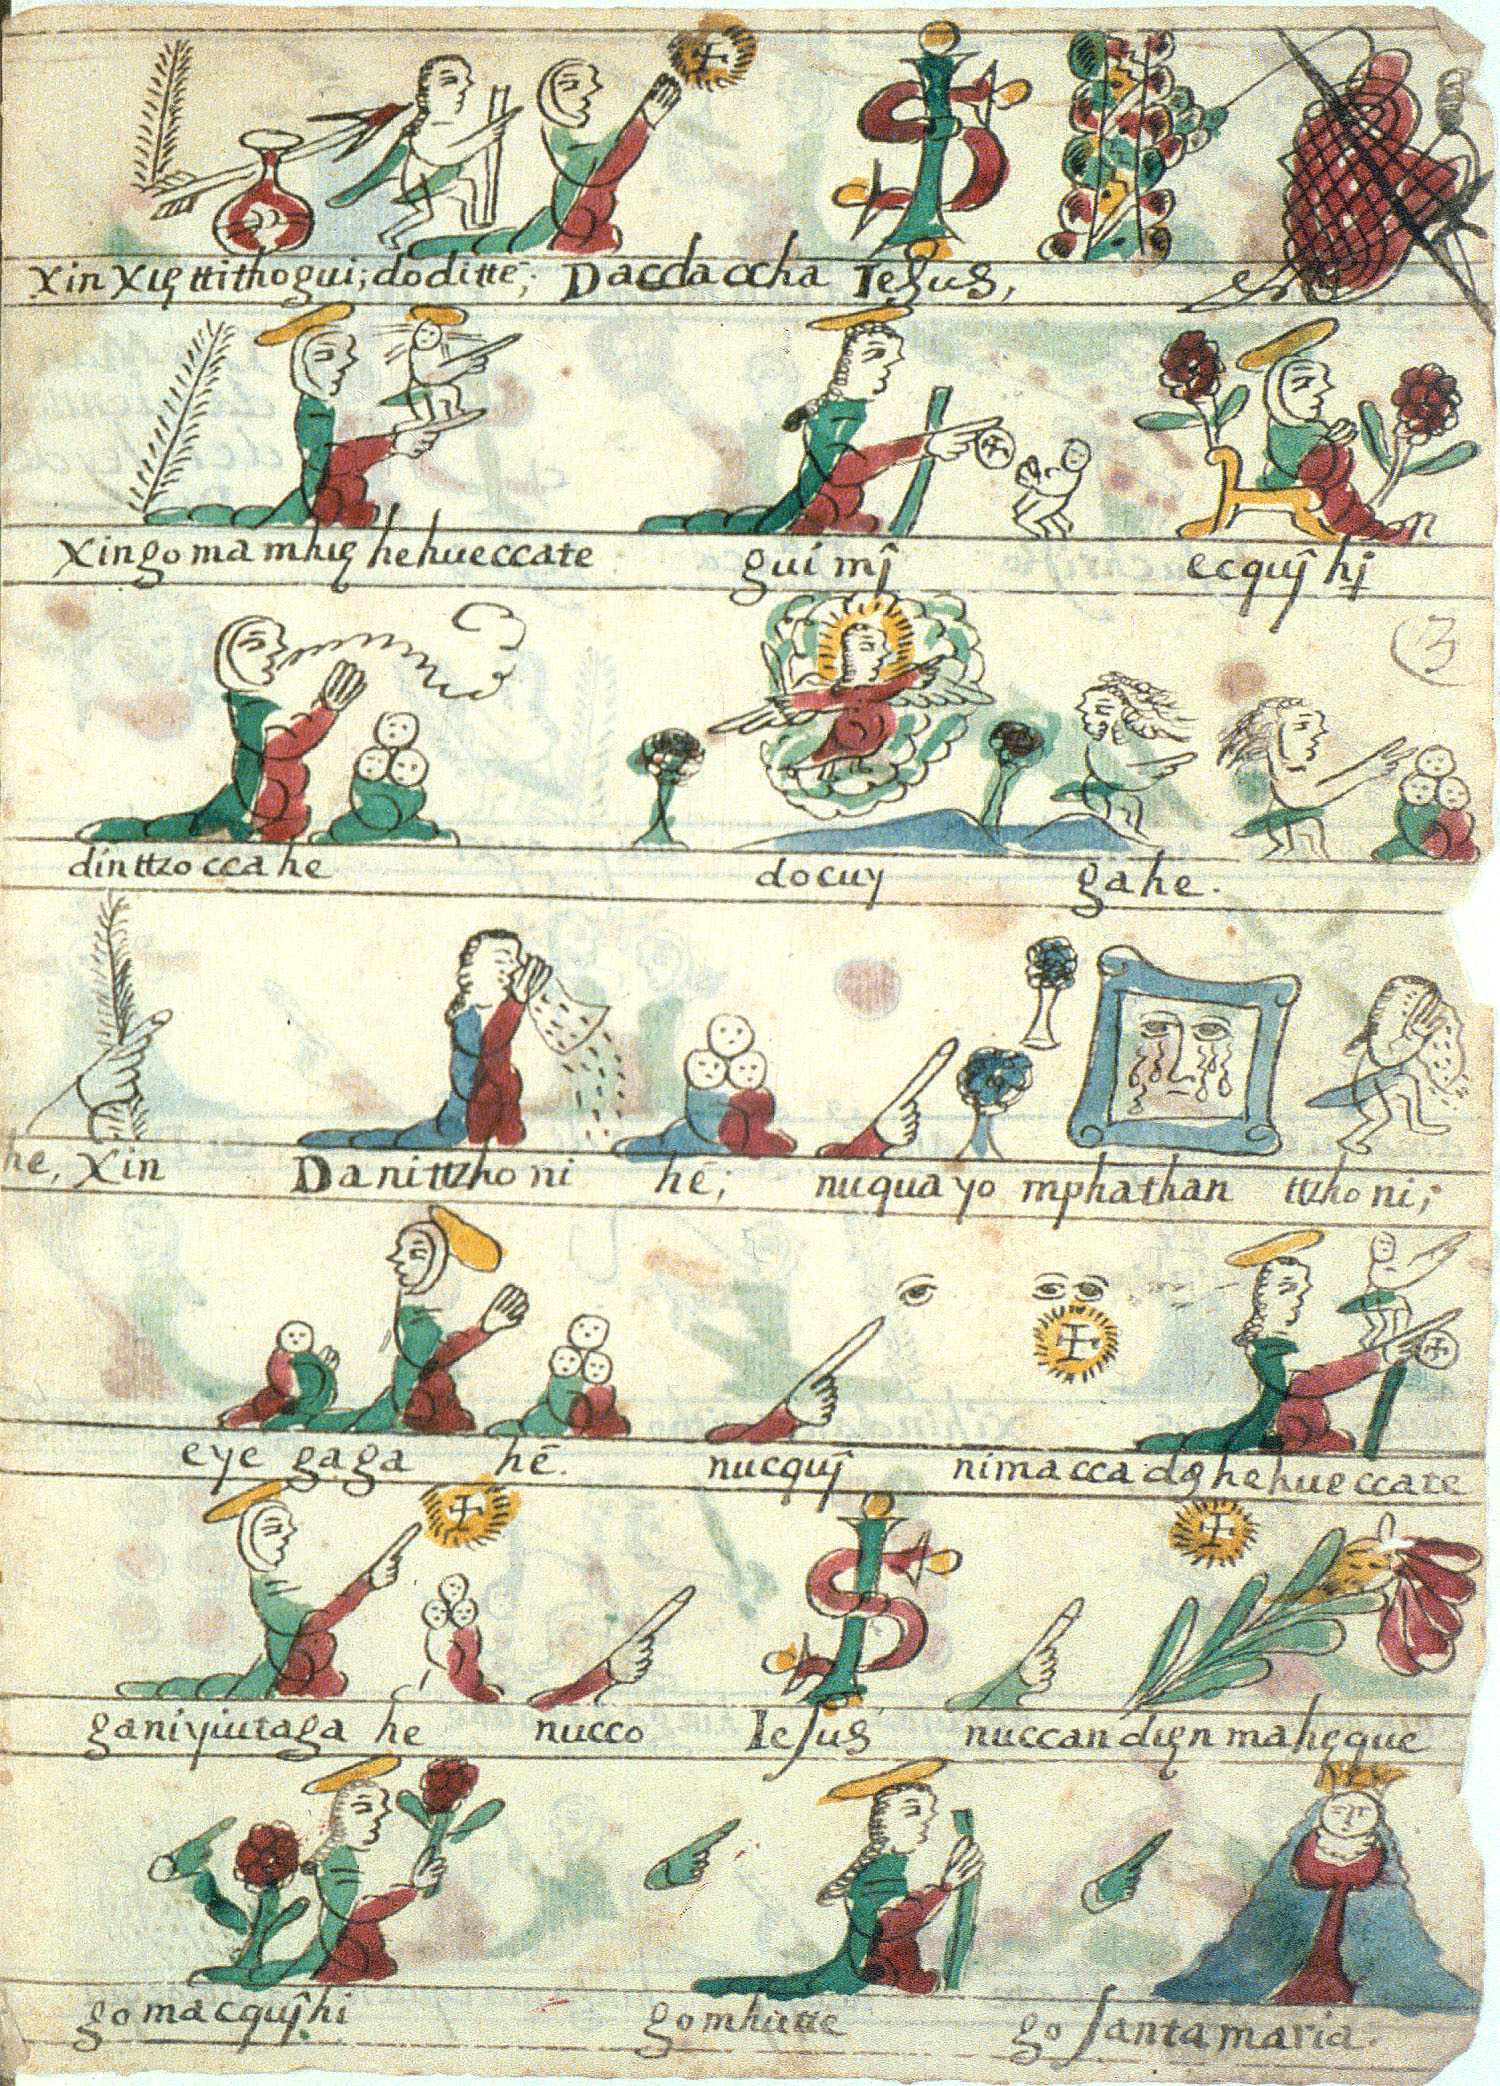 xin xię ttithogui; doditte; Dacdaccha Iesus,
xingo ma mhię hehueccate guí mȷ̂ ecquȷ̂ hi
3
dinttzoccahe docuy gahe.
he, xin Danittzhoni hē; nuquayo mphathan ttzhoni;
eye gaga hē. nucquȷ̂ nimaccadę hehueccate
ganiyiutaga he nucco Iesus nuccandięn maheque
go macquȷ̂hi gomhuttе go santa maria.